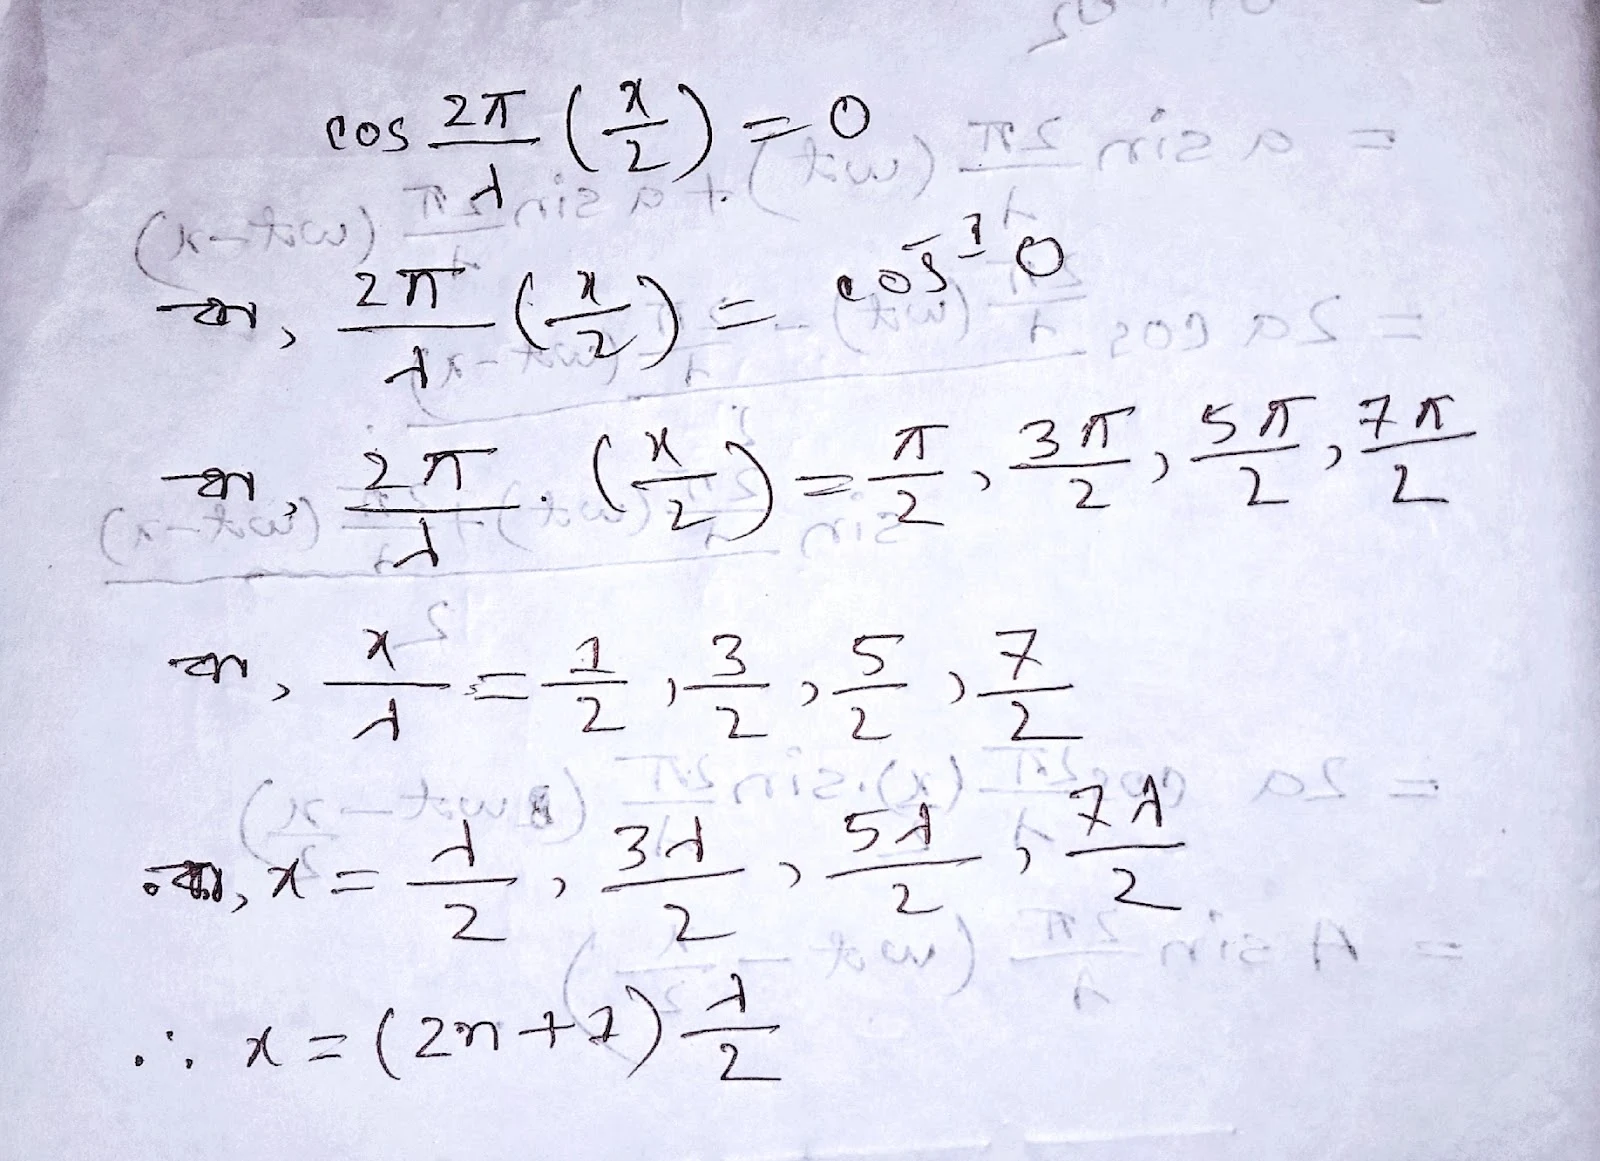 cos 2π/λ (x/2) = 0
বা, 2π/λ (x/2) = cos⁻¹ 0
বা, 2π/λ · (x/2) = π/2, 3π/2, 5π/2, 7π/2
বা, x/λ = 1/2, 3/2, 5/2, 7/2
বা, x = λ/2, 3λ/2, 5λ/2, 7λ/2
∴ x = (2n+1) λ/2